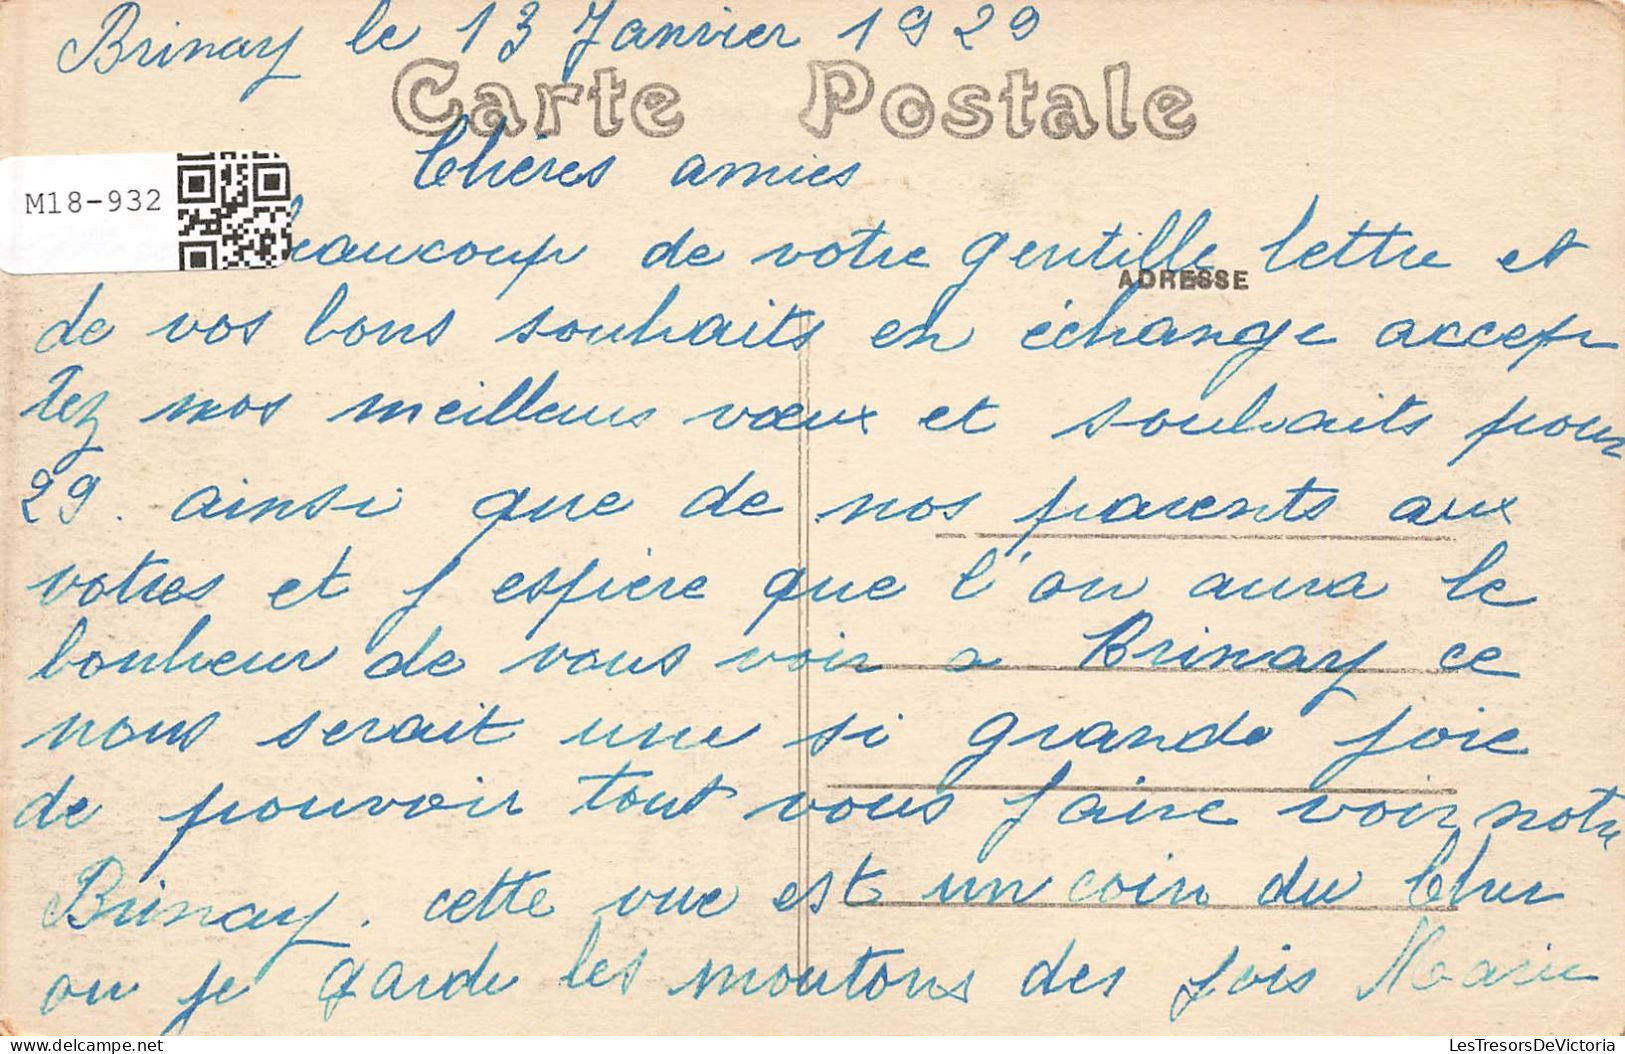 Brinay le 13 Janvier 1929
Carte Postale
Chères amies
M18-932
beaucoup de votre gentille lettre et
ADRESSE
de vos bons souhaits en échange accep
tez nos meilleurs vœux et souhaits pour
29. ainsi que de nos parents aux
votres et j espère que l'on aura le
bonheur de vous voir a Brinay ce
nous serait une si grande joie
de pouvoir tout vous faire voir notre
Brinay. cette vue est un coin du Cher
ou je garde les moutons des fois Marie
LesTresorsDeVictoria
delcampe.net